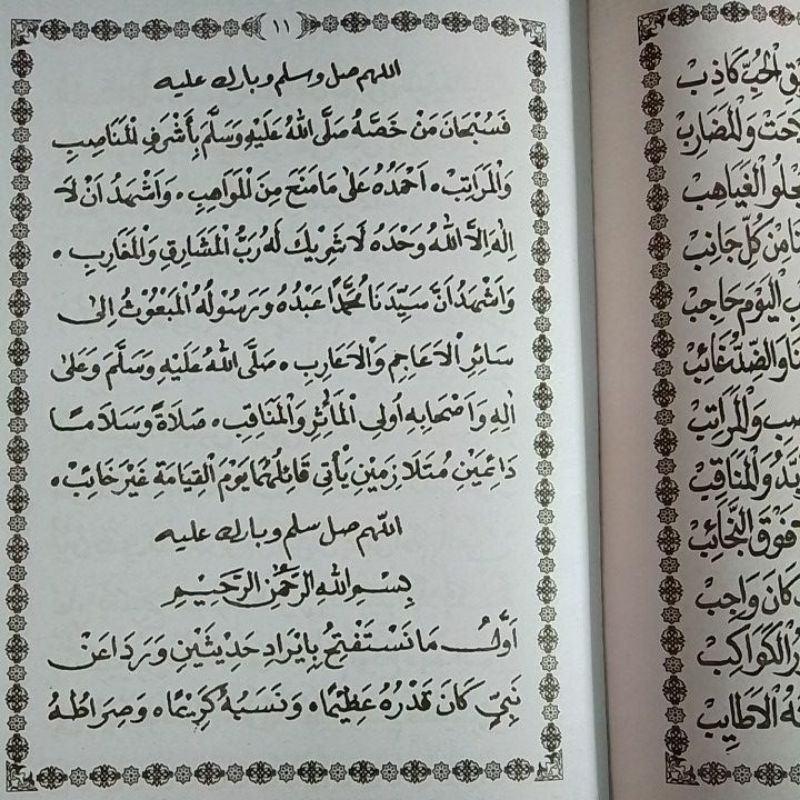 ١١
اللهم صل وسلم وبارك عليه
فَسُبْحَانَ مَنْ خَصَّهُ صَلَّى اللهُ عَلَيْهِ وَسَلَّمَ بِأَشْرَفِ الْمَنَاصِبِ
وَالْمَرَاتِبْ، اَحْمَدُهُ عَلَى مَا مَنَحَ مِنَ الْمَوَاهِبِ، وَاَشْهَدُ اَنْ لَا
اِلٰهَ اِلَّا اللهُ وَحْدَهُ لَا شَرِيْكَ لَهُ رَبُّ الْمَشَارِقِ وَالْمَغَارِبِ،
وَاَشْهَدُ اَنَّ سَيِّدَنَا مُحَمَّدًا عَبْدُهُ وَرَسُوْلُهُ الْمَبْعُوْثُ اِلَى
سَائِرِ الْاَعَاجِمِ وَالْاَعَارِبِ، صَلَّى اللهُ عَلَيْهِ وَسَلَّمَ وَعَلَى
اٰلِهِ وَاَصْحَابِهِ اُولِى الْمَأٰثِرِ وَالْمَنَاقِبِ، صَلَاةً وَسَلَامًا
دَائِمَيْنِ مُتَلَازِمَيْنِ يَأْتِى قَائِلُهُمَا يَوْمَ الْقِيَامَةِ غَيْرَ خَائِبْ،
اللهم صل سلم وبارك عليه
بِسْمِ اللهِ الرَّحْمٰنِ الرَّحِيْمِ
اَوَّلُ مَا نَسْتَفْتِحُ بِاِيْرَادِ حَدِيْثَيْنِ وَرَدَا عَنْ
نَبِيٍّ كَانَ قَدْرُهُ عَظِيْمًا، وَنَسَبُهُ كَرِيْمًا، وَصِرَاطُهُ
الْحُبِّ كَاذِبْ
وَالْمَضَارِبْ
الْغَيَاهِبْ
مِنْ كُلِّ جَانِبْ
الْيَوْمَ حَاجِبْ
وَالضِّدُّ غَائِبْ
وَالْمَرَاتِبْ
وَالْمَنَاقِبْ
فَوْقَ النَّجَائِبْ
كَانَ وَاجِبْ
الْكَوَاكِبْ
الْاَطَايِبْ